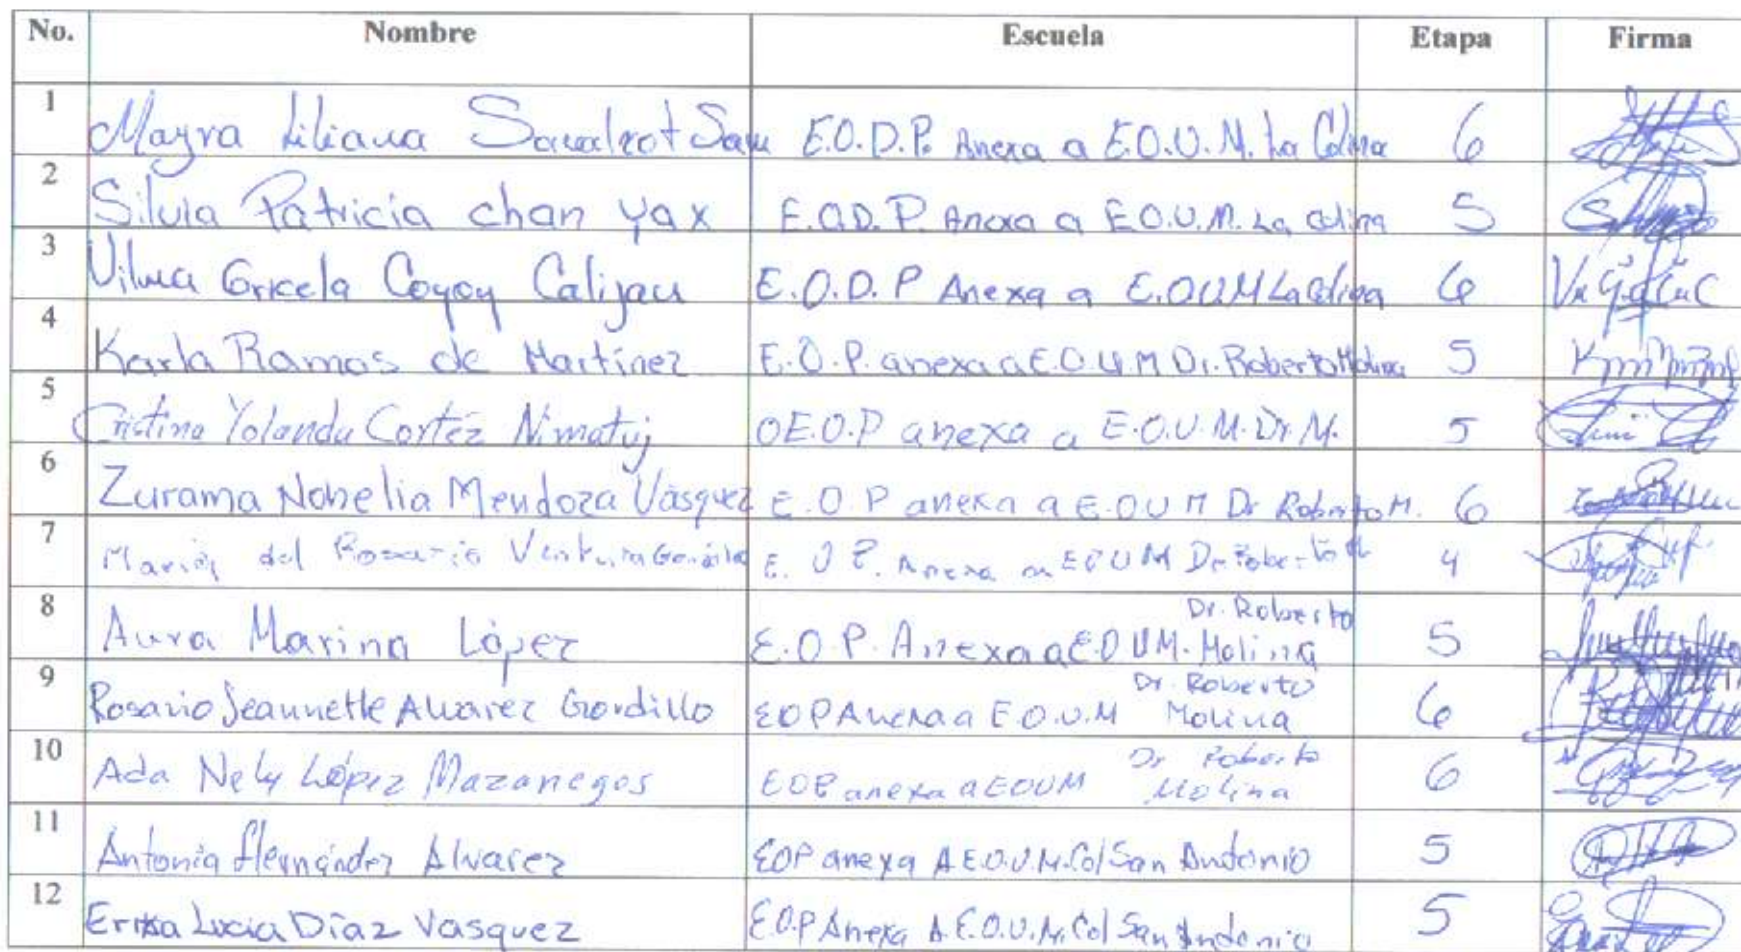 No. Nombre Escuela Etapa Firma
1 Mayra Liliana Sacalxot Sam E.O.D.P. Anexa a E.O.U.M. La Colina 6
2 Silvia Patricia chan yax E.O.D.P. Anexa a E.O.U.M. La Colina 5
3 Vilma Gricela Coyoy Calijau E.O.D.P Anexa a E.O.U.M La Colina 6
4 Karla Ramos de Martínez E.O.P. anexa a E.O.U.M Dr. Roberto Molina 5
5 Cristina Yolanda Cortéz Nimatuj OE.O.P anexa a E.O.U.M. Dr. M. 5
6 Zurama Nohelia Mendoza Vásquez E.O.P anexa a E.O.U.M Dr Roberto M. 6
7 María del Rosario Ventura E.O.P. Anexa a EOUM Dr Roberto 4
8 Aura Marina López E.O.P. Anexa a E.O.U.M. Dr. Roberto Molina 5
9 Rosario Jeannette Alvarez Gordillo EOP Anexa a E.O.U.M Dr. Roberto Molina 6
10 Ada Nely López Mazariegos EOP anexa a EOUM Dr Roberto Molina 6
11 Antonia Hernández Alvarez EOP anexa A E.O.U.M. Col San Antonio 5
12 Erika Lucia Díaz Vasquez E.O.P Anexa A E.O.U.M. Col San Antonio 5